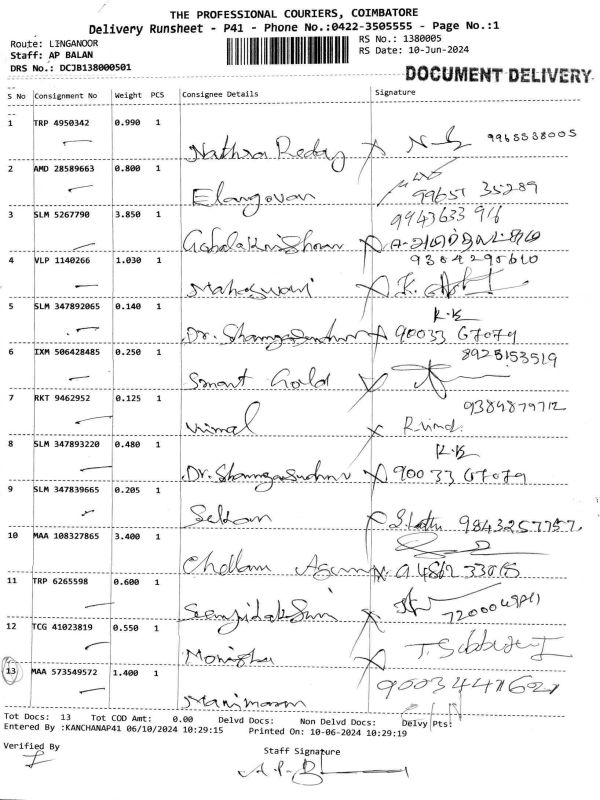 THE PROFESSIONAL COURIERS, COIMBATORE
Delivery Runsheet - P41 - Phone No.:0422-3505555 - Page No.:1
Route: LINGANOOR
RS No.: 1380005
Staff: AP BALAN
RS Date: 10-Jun-2024
DRS No.: DCJB138000501
DOCUMENT DELIVERY
S No Consignment No Weight PCS Consignee Details Signature
1 TRP 4950342 0.990 1
Nathra Reday 9965538005
2 AMD 28589663 0.800 1
Elangovan 99657 35289
3 SLM 5267790 3.850 1
9943633 916
Gobalakrishnan
4 VLP 1140266 1.030 1
9384290610
Maheswari
5 SLM 347892065 0.140 1
K.K
Dr. 90033 67079
6 IXM 506428485 0.250 1
8925153519
Smart Gold
7 RKT 9462952 0.125 1
9384879712
Vimal
8 SLM 347893220 0.480 1
K.K
Dr. 90033 67079
9 SLM 347839665 0.205 1
Selvan 9843257757
10 MAA 108327865 3.400 1
Chellam
11 TRP 6265598 0.600 1
12 TCG 41023819 0.550 1
Monisha
13 MAA 573549572 1.400 1
Manimaran
Tot Docs: 13 Tot COD Amt: 0.00 Delvd Docs: Non Delvd Docs: Delvy Pts:
Entered By :KANCHANAP41 06/10/2024 10:29:15 Printed On: 10-06-2024 10:29:19
Verified By
Staff Signature